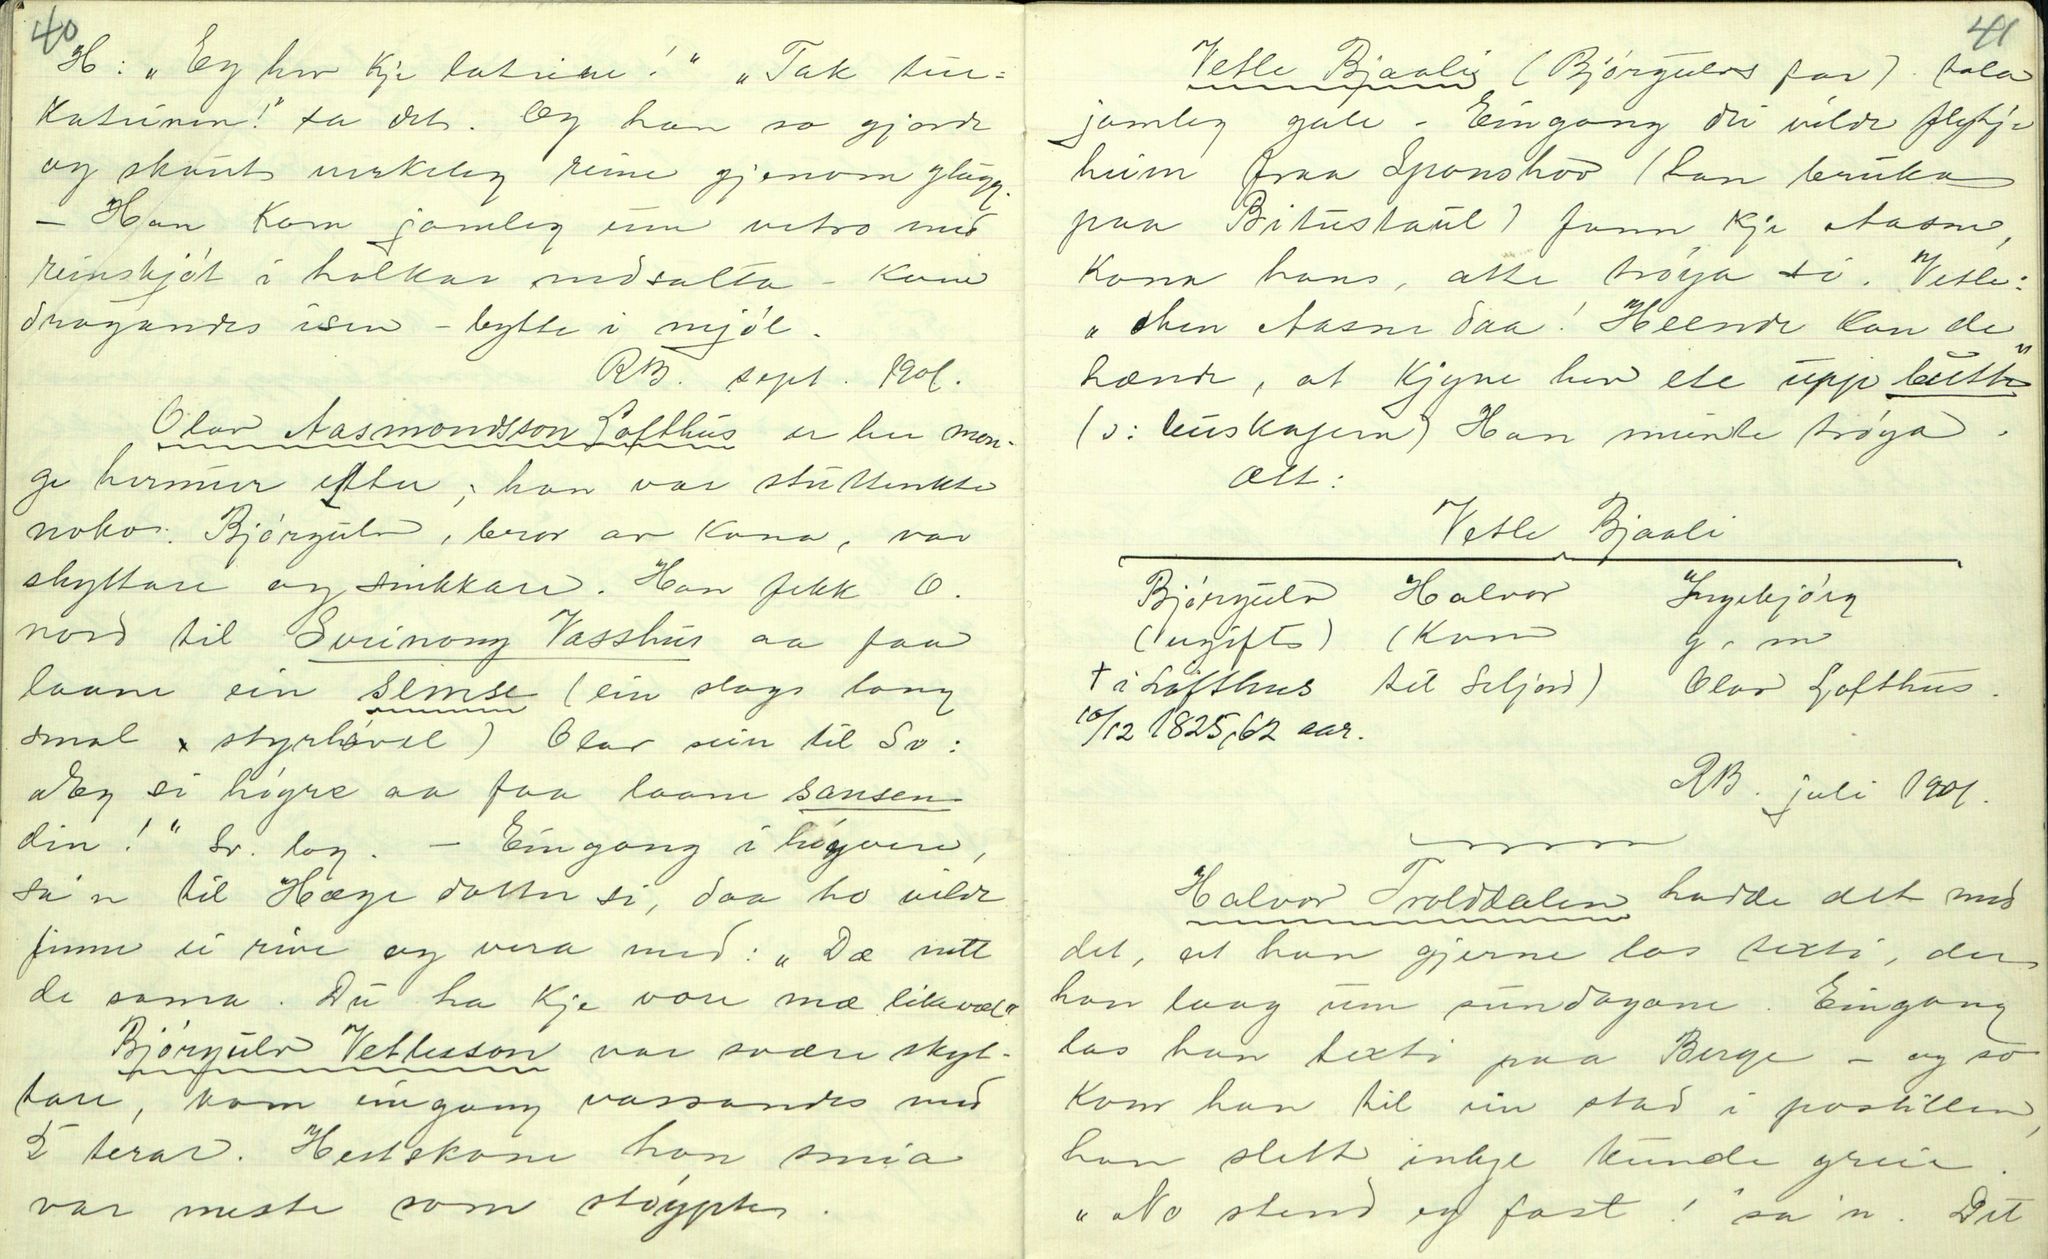 40
H: „Eg hev kje latrine!" „Tak tur=
katrinen!" sa det. Og han so gjorde
og skaut verkeleg reine gjenom glugg.
– Han kom jamleg um vetro med
reinskjøt i holkar nedsalta – kom
dragandes isen – bytte i mjøl.
RB. sept. 1901.
Olav Aasmondsson Lofthus er her man-
ge hermur etter; han var stuttenkte
nokor. Bjørgulv, bror av kona, var
skyttare og snikkare. Han fekk O.
nord til Sveinong Vasshus aa faa
laane ein simse (ein slags lang
smal styrhøvel) Olav sein til Sv:
„Eg ei høgre aa faa laane sansen
din!" Sv. log. – Eingong i høyvere,
sa'n til Hæge dotter si, daa ho vilde
finne ei rive og vera med: „Dæ nett
de sama. Du ha kje vore mæ likevæl"
Bjørgulv Vetlesson var svære skyt-
tare, kom eingong vassandes med
5 terar. Hestskone han smia
var meste som støypte.
41
Vetle Bjaali (Bjørgulvs far) tala
jamleg gale – Eingong dei vilde flytje
heim fraa Sponshov (han bruka
paa Bitustaul) fann kje Aasne,
kona hans, atte trøya si. Vetle:
„ Aasne daa! Heende kan de
hænde, at kjyne hev ete upp butte"
(ɔ: buskapen) Han meinte trøya.
Ætt:
Vetle Bjaali
Bjørgulv Halvor Ingebjørg
(ugift) (kom g. m
† i Lofthus til Seljord) Olav Lofthus.
10/12 1825, 62 aar.
RB. juli 1901.
Halvor Trolddalen hadde det med
det, at han gjerne las texti, der
han laag um sundagane. Eingong
las han texti paa Berge – og so
kom han til ein stad i postillen,
han slett inkje kunde greie.
„No stend eg fast!" sa'n. Det